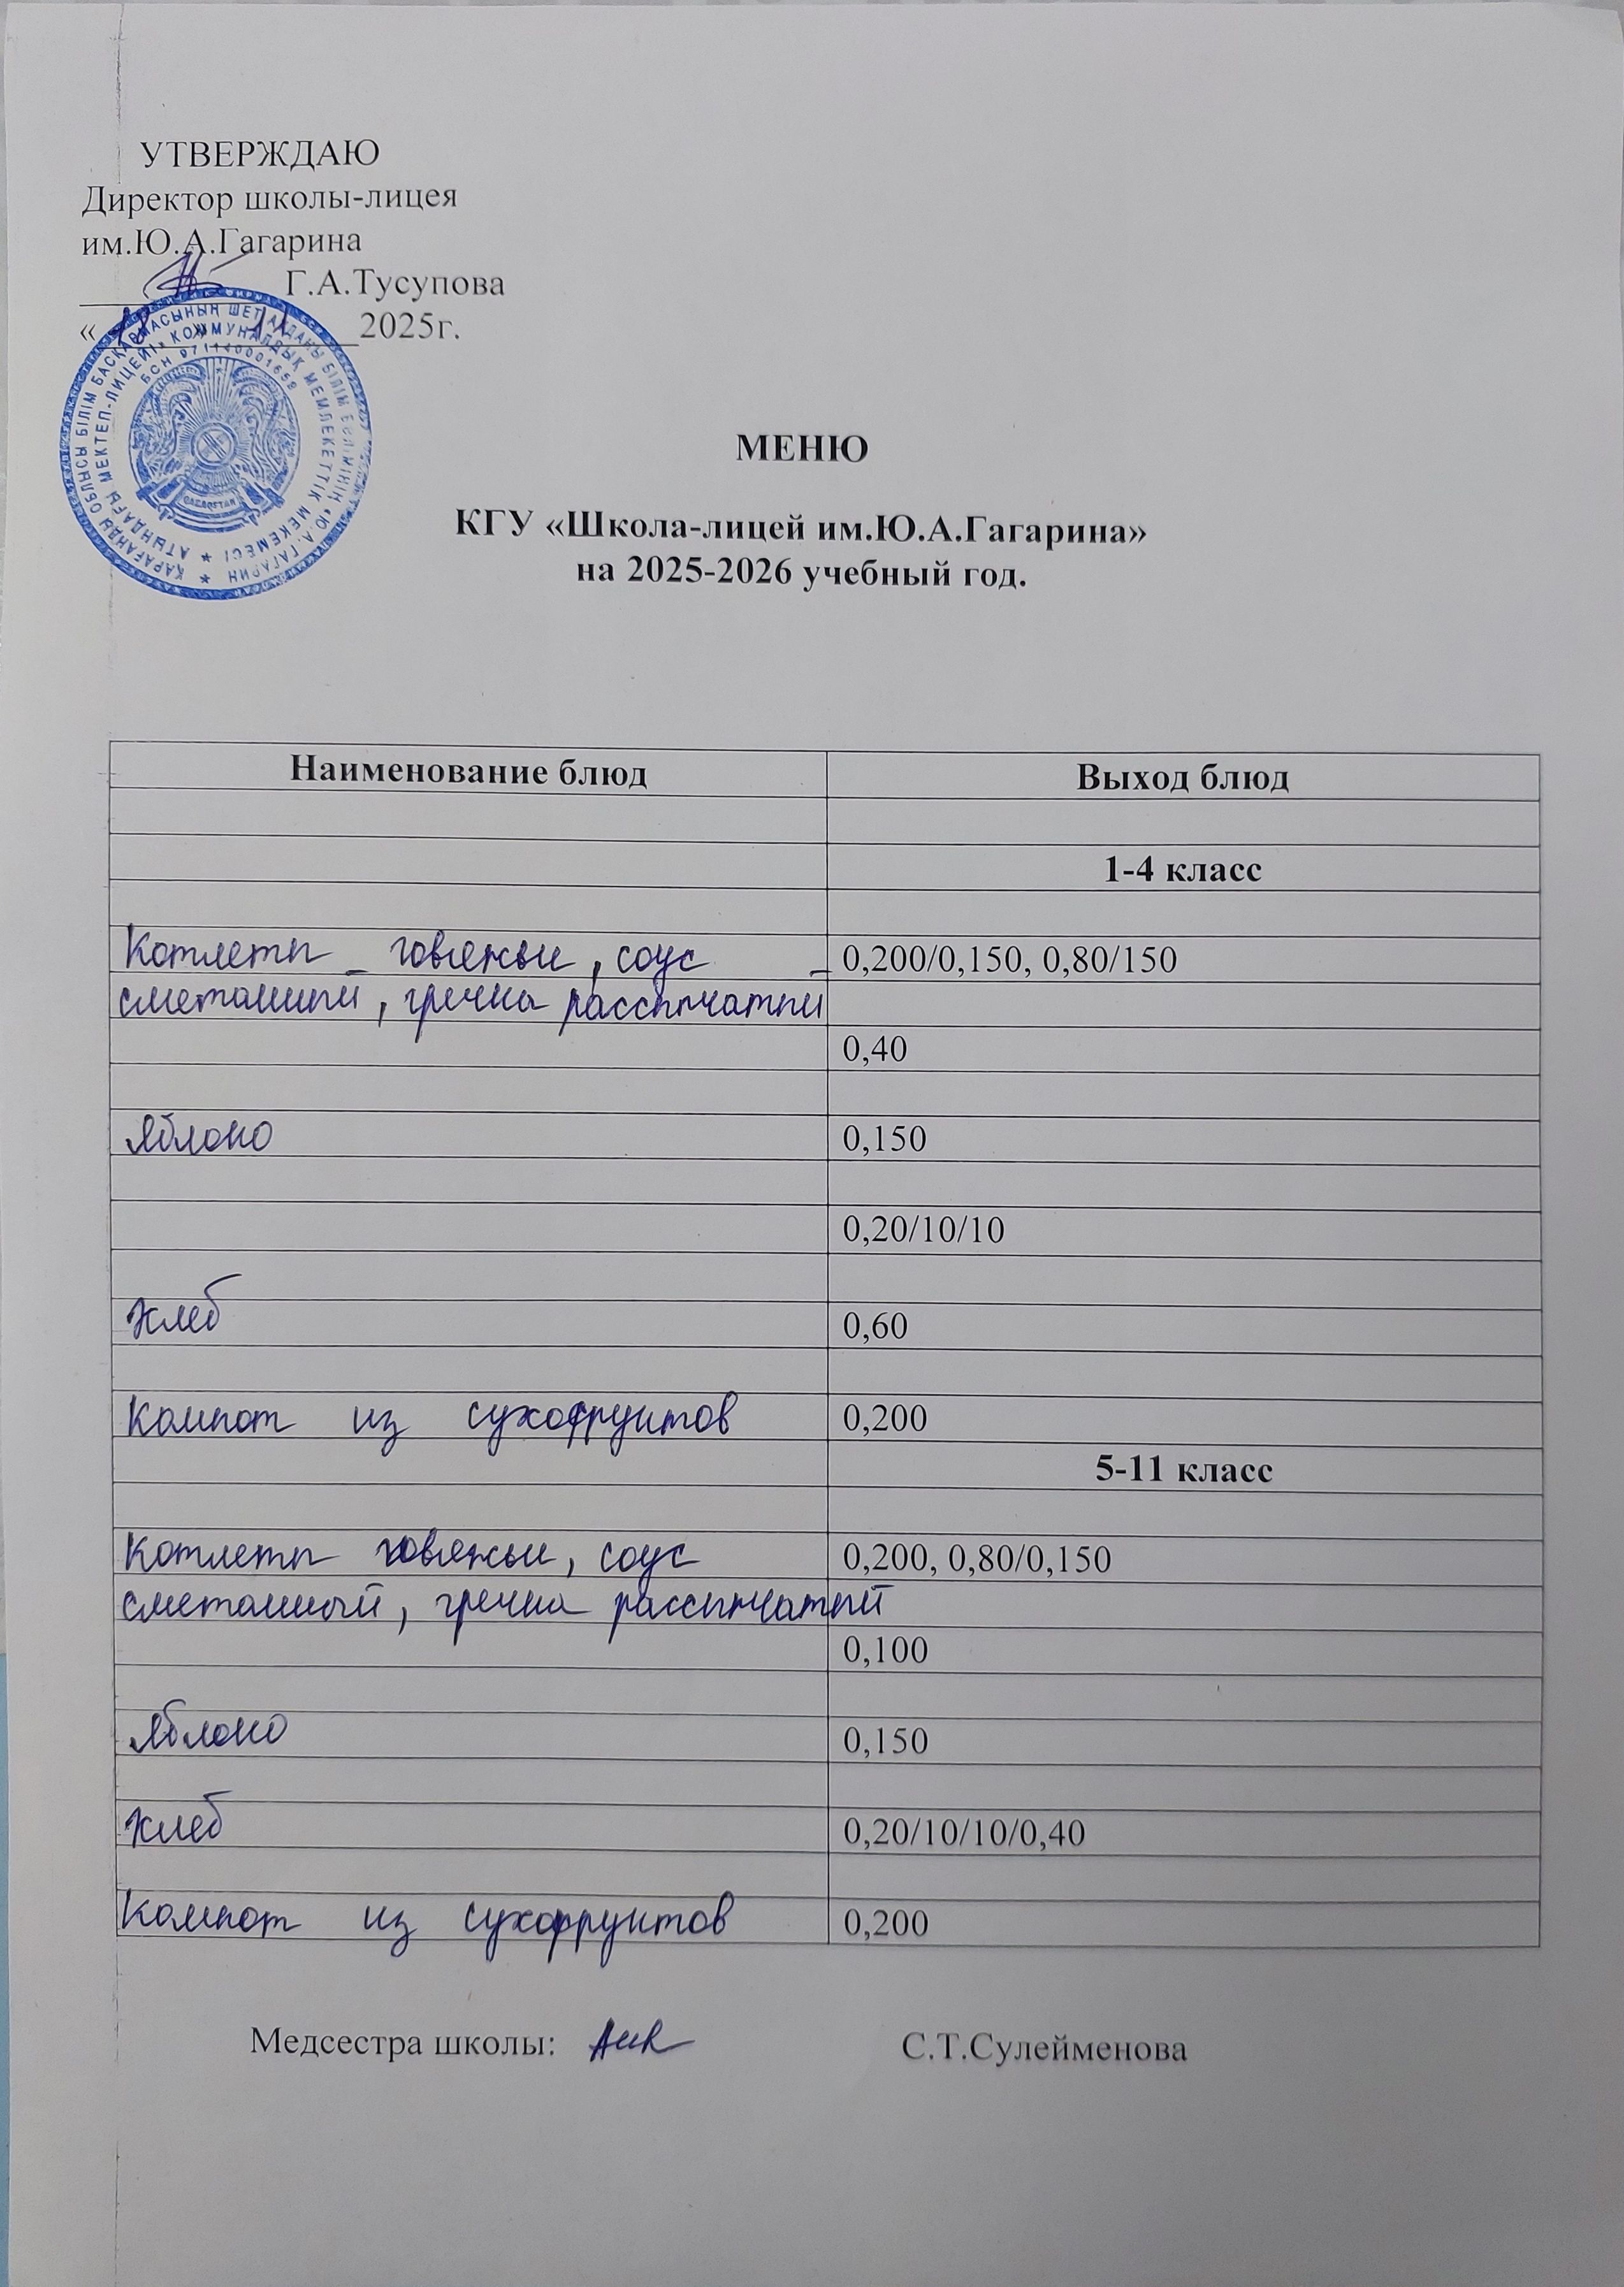 УТВЕРЖДАЮ
Директор школы-лицея
им.Ю.А.Гагарина
Г.А.Тусупова
« » 11 2025г.
БСН 971140001659
МЕНЮ
КГУ «Школа-лицей им.Ю.А.Гагарина»
на 2025-2026 учебный год.
Наименование блюд Выход блюд
1-4 класс
Котлеты говяжьи, соус 0,200/0,150, 0,80/150
сметанный, гречка рассыпчатый
0,40
Яблоко 0,150
0,20/10/10
Хлеб 0,60
Компот из сухофруктов 0,200
5-11 класс
Котлеты говяжьи, соус 0,200, 0,80/0,150
сметанный, гречка рассыпчатый
0,100
Яблоко 0,150
Хлеб 0,20/10/10/0,40
Компот из сухофруктов 0,200
Медсестра школы: С.Т.Сулейменова